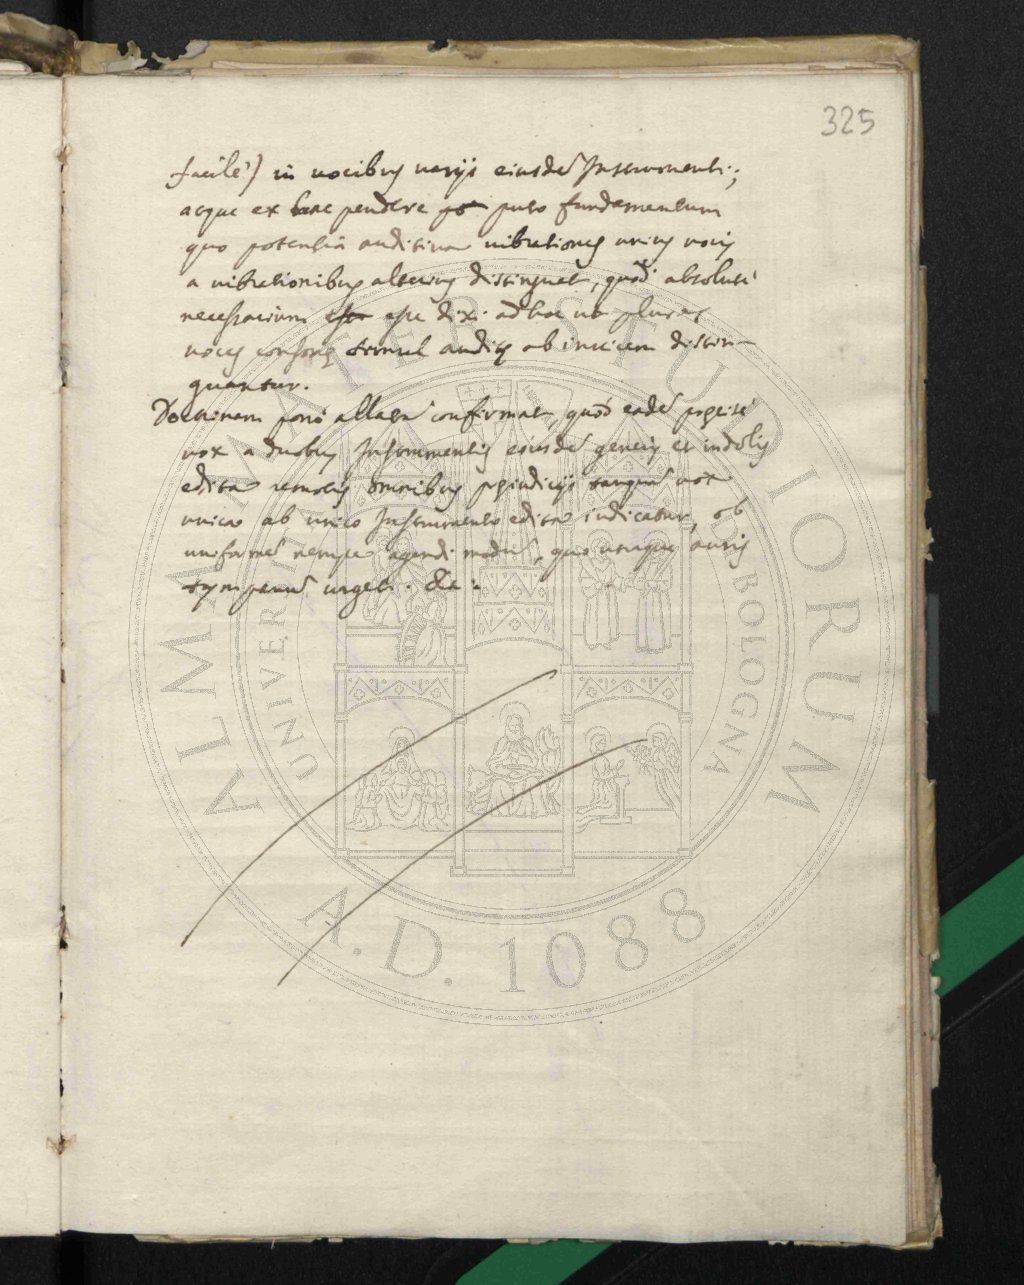 325
facile) in vocibus varijs eiusdē Instrumenti;
atque ex hac pendere puto fundamentum
quo potentia auditiva vibrationes unius vocis
a vibrationibus alterius distinguet, quod absolutè
necessarium esse dixi ad hoc ut plures
voces consonę simul auditę ab invicem distin-
guantur.
Doctrinam porrò allatā confirmat, quòd eadē pręcisè
vox a duobus Instrumentis eiusdē generis et indolis
edita remotis omnibus pręiudicijs tanquā vox
unica ab unico Instrumento edita iudicatur, ob
uniformē nempe agendi modū, quo utriusque auris
tympanū urget. &c.
ALMA MATER STUDIORUM
UNIVERSITÀ DI BOLOGNA
A.D. 1088